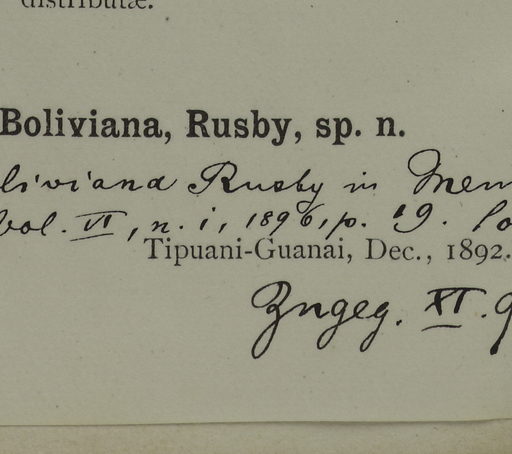 distributæ.
Boliviana, Rusby, sp. n.
liviana Rusby in Mem
Vol. VI, n. i, 1896, p. 19. lo
Tipuani-Guanai, Dec., 1892.
Zngeg. XI. 9